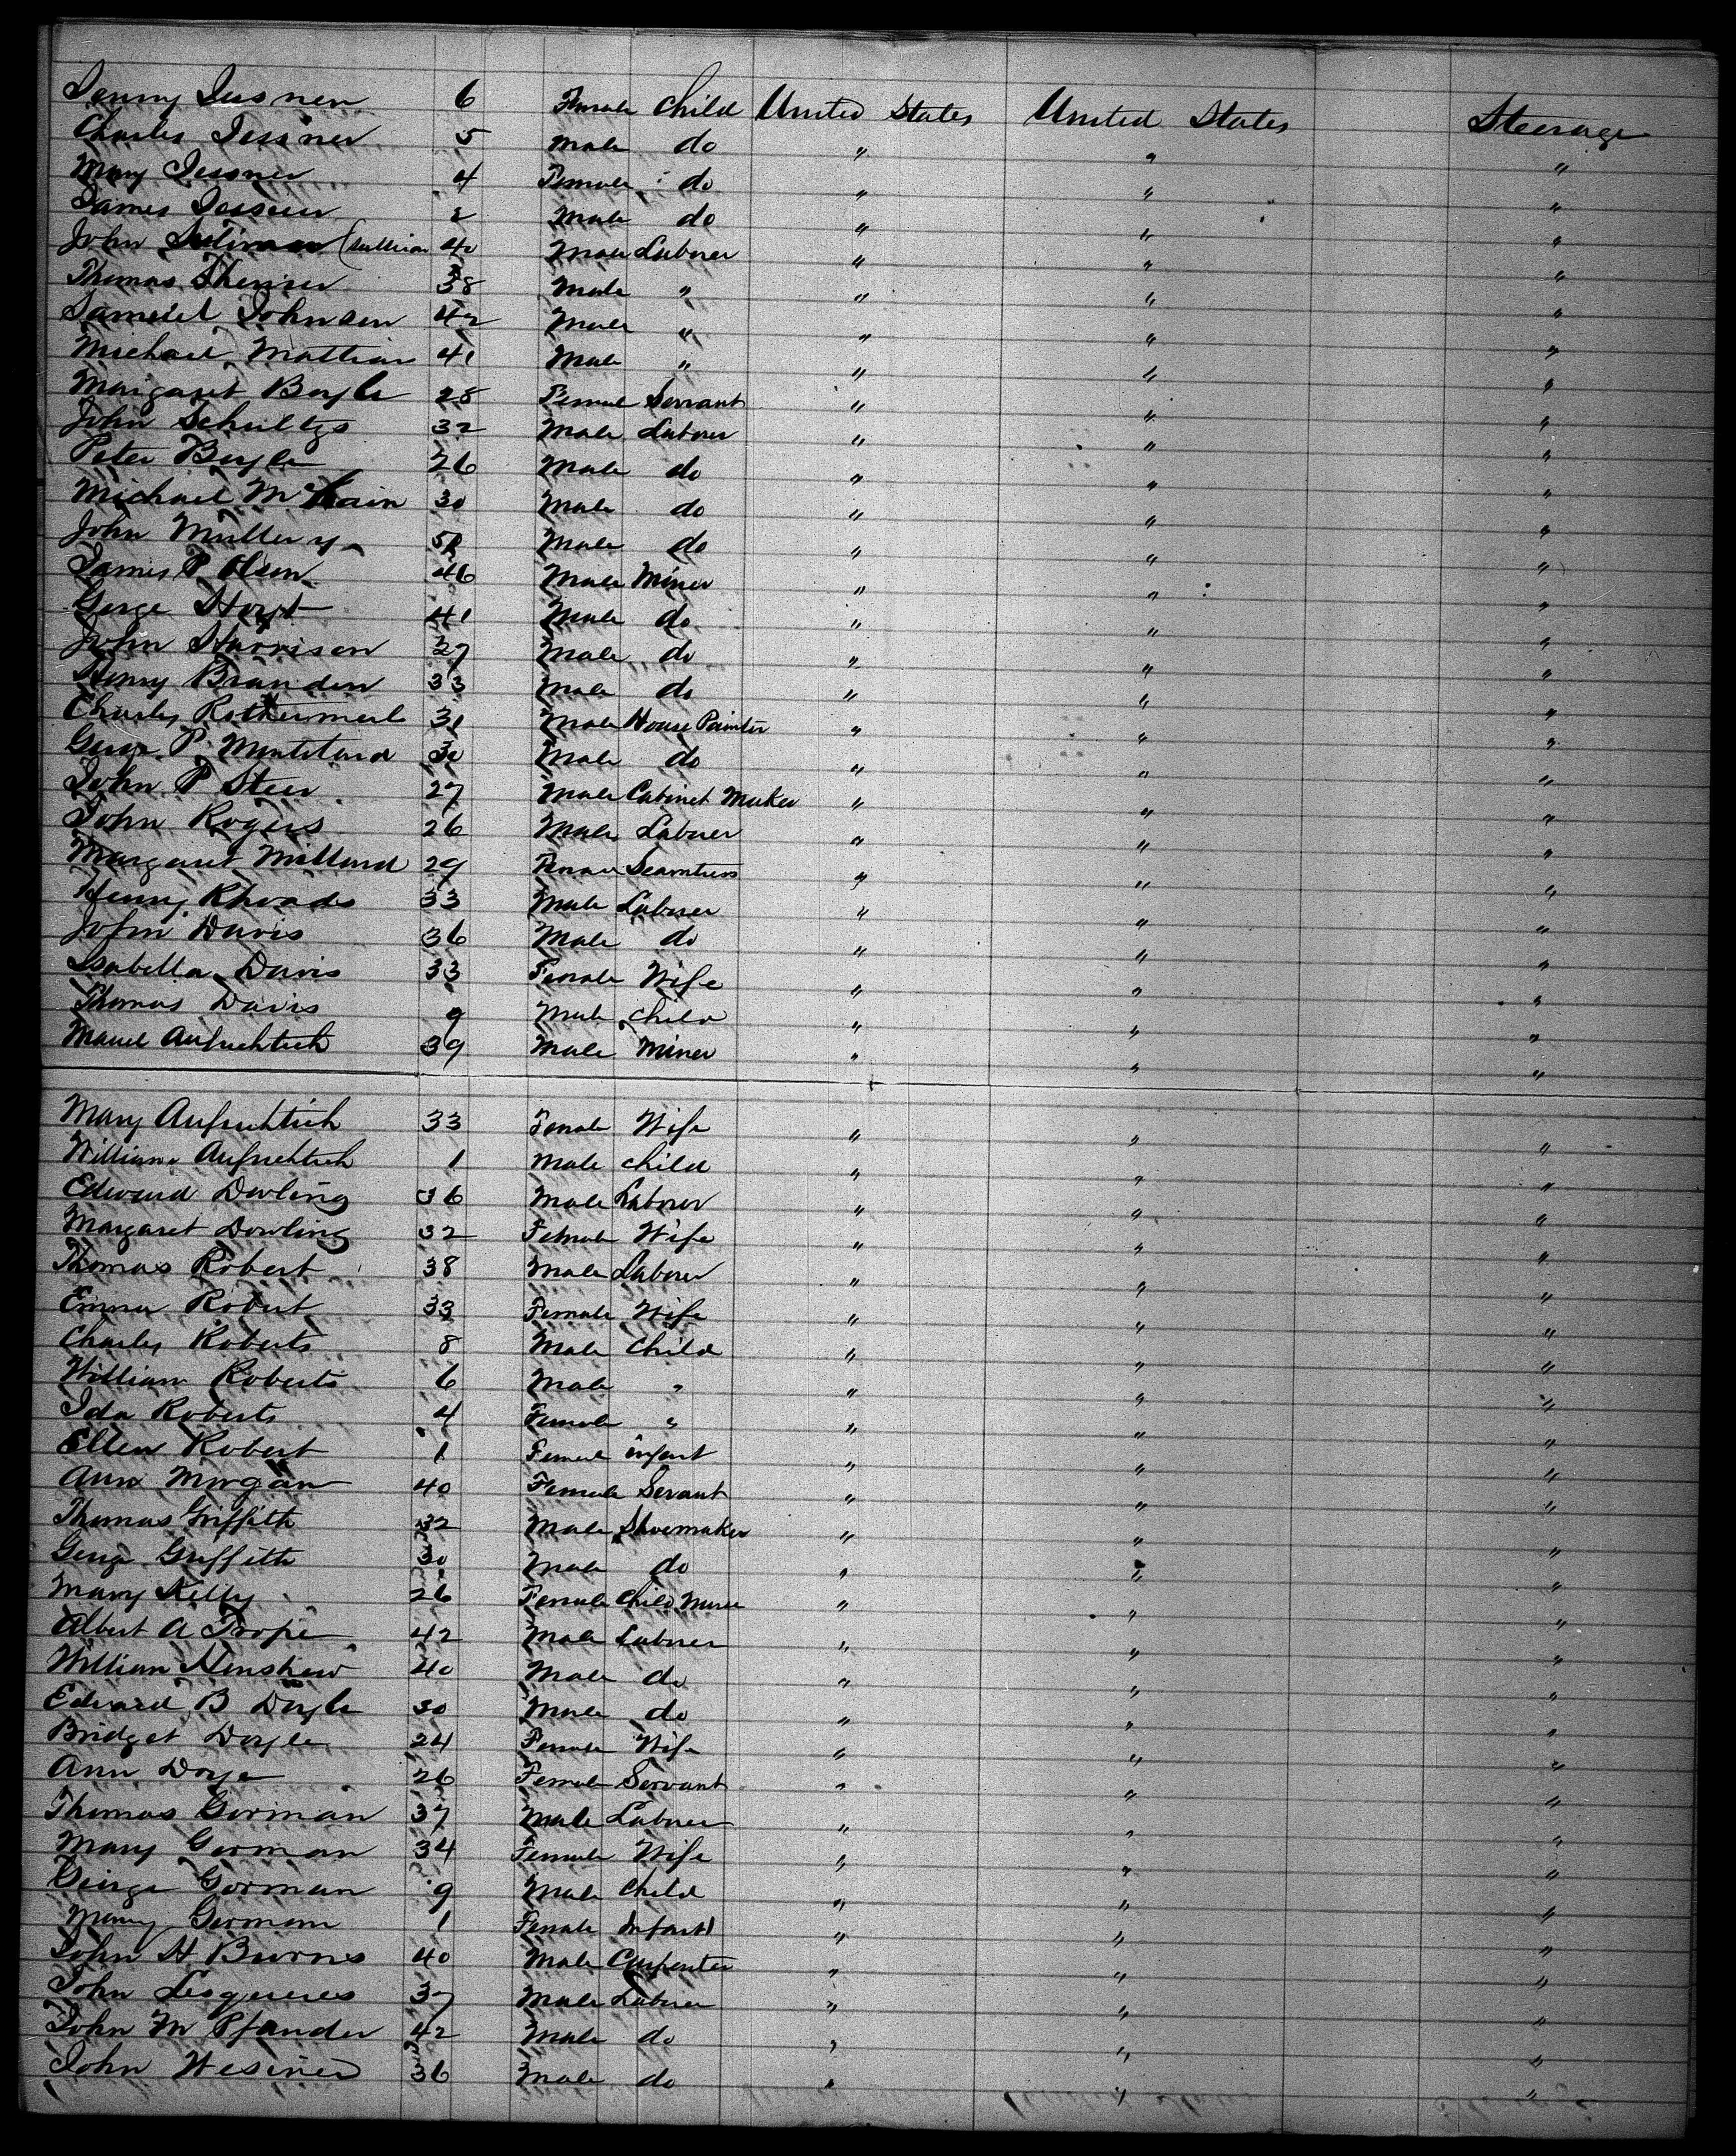 Jenny Jessner 6 Female Child United States United States Steerage
Charles Jessner 5 Male do " " "
Mary Jessner 4 Female do " " "
James Jessner 2 Male do " " "
John (Sullivan 40 Male Laborer " " "
Thomas 38 Male " " " "
Samuel Johnson 42 Male " " " "
Michael 41 Male " " " "
Margaret Boyle 28 Female Servant " " "
John Schultzs 32 Male Laborer " " "
Peter Boyle 26 Male do " " "
Michael 30 Male do " " "
John Mullery Male do " " "
James P Olsen 46 Male Miner " " "
George Hoyt 41 Male do " " "
John Harrison 27 Male do " " "
Henry Branden 33 Male do " " "
Charles Rothermerl 31 Male House Painter " " "
P. 30 Male do " " "
John P Steer 27 Male Cabinet Maker " " "
John Rogers 26 Male Laborer " " "
Margaret Millard 29 Female Seamtress " " "
Henry Rhoads 33 Male Laborer " " "
John Davis 36 Male do " " "
Isabella Davis 33 Female Wife " " "
Thomas Davis 9 Male Child " " "
Aufrichtich 39 Male Miner " " "
Mary Aufrichtich 33 Female Wife " " "
William Aufrichtich 1 Male Child " " "
Edward Dowling 36 Male Laborer " " "
Margaret Dowling 32 Female Wife " " "
Thomas Robert 38 Male Laborer " " "
Emma Robert 33 Female Wife " " "
Charles Roberts 8 Male Child " " "
William Roberts 6 Male " " " "
Ida Roberts 4 Female " " " "
Ellen Robert 1 Female infant " " "
Ann Morgan 40 Female Servant " " "
Thomas Griffith 32 Male Shoemaker " " "
George Griffith 30 Male do " " "
Mary Kelly 26 Female Child Nurse " " "
Albert A Trope 42 Male Laborer " " "
William Henshaw 40 Male do " " "
Edward B Doyle 30 Male do " " "
Bridget Doyle 24 Female Wife " " "
Ann Doye 26 Female Servant " " "
Thomas Gorman 37 Male Laborer " " "
Mary Gorman 34 Female Wife " " "
George Gorman 9 Male Child " " "
Mary Gorman 1 Female Infant " " "
John H Burns 40 Male Carpenter " " "
John Lesquereus 37 Male Laborer " " "
John M Pfander 42 Male do " " "
John Wesiner 36 Male do " " "